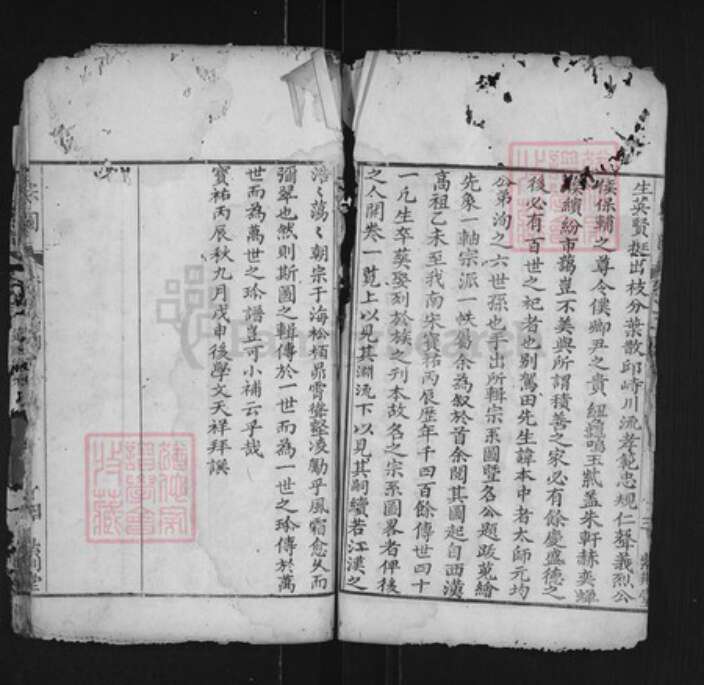 生英賢挺出枝分葉散邱峙川流孝範忠規仁聲義烈公
侯保輔之尊令僕卿丑之貴紐龜鳴玉紫蓋朱軒赫奕蟬
繽紛市藹豈不美與所謂積善之家必有餘慶盛德之
後必有百世之祀者也別駕田先生諱本中者太師元均
公弟洵之六世孫也手出所輯宗系圖暨名公題跋蒐繪
先象一軸宗派一帙屬余為叙於首余閱其圖起自西漢
高祖乙未至我南宋寶祐丙辰歷年千四百餘傳世四十
一凡生卒葬娶列於族之刊本故名之宗系圖畧者俾後
之人開卷一覽上以見其淵流下以見其嗣續若江漢之
浩〻蕩〻朝宗于海松栢昂霄聳壑凌勵乎風霜愈久而
彌翠也然則斯圖之輯傳於一世而為一世之珍傳於萬
世而為萬世之珍譜豈可小補云乎哉
寶祐丙辰秋九月戊申後學文天祥拜譔